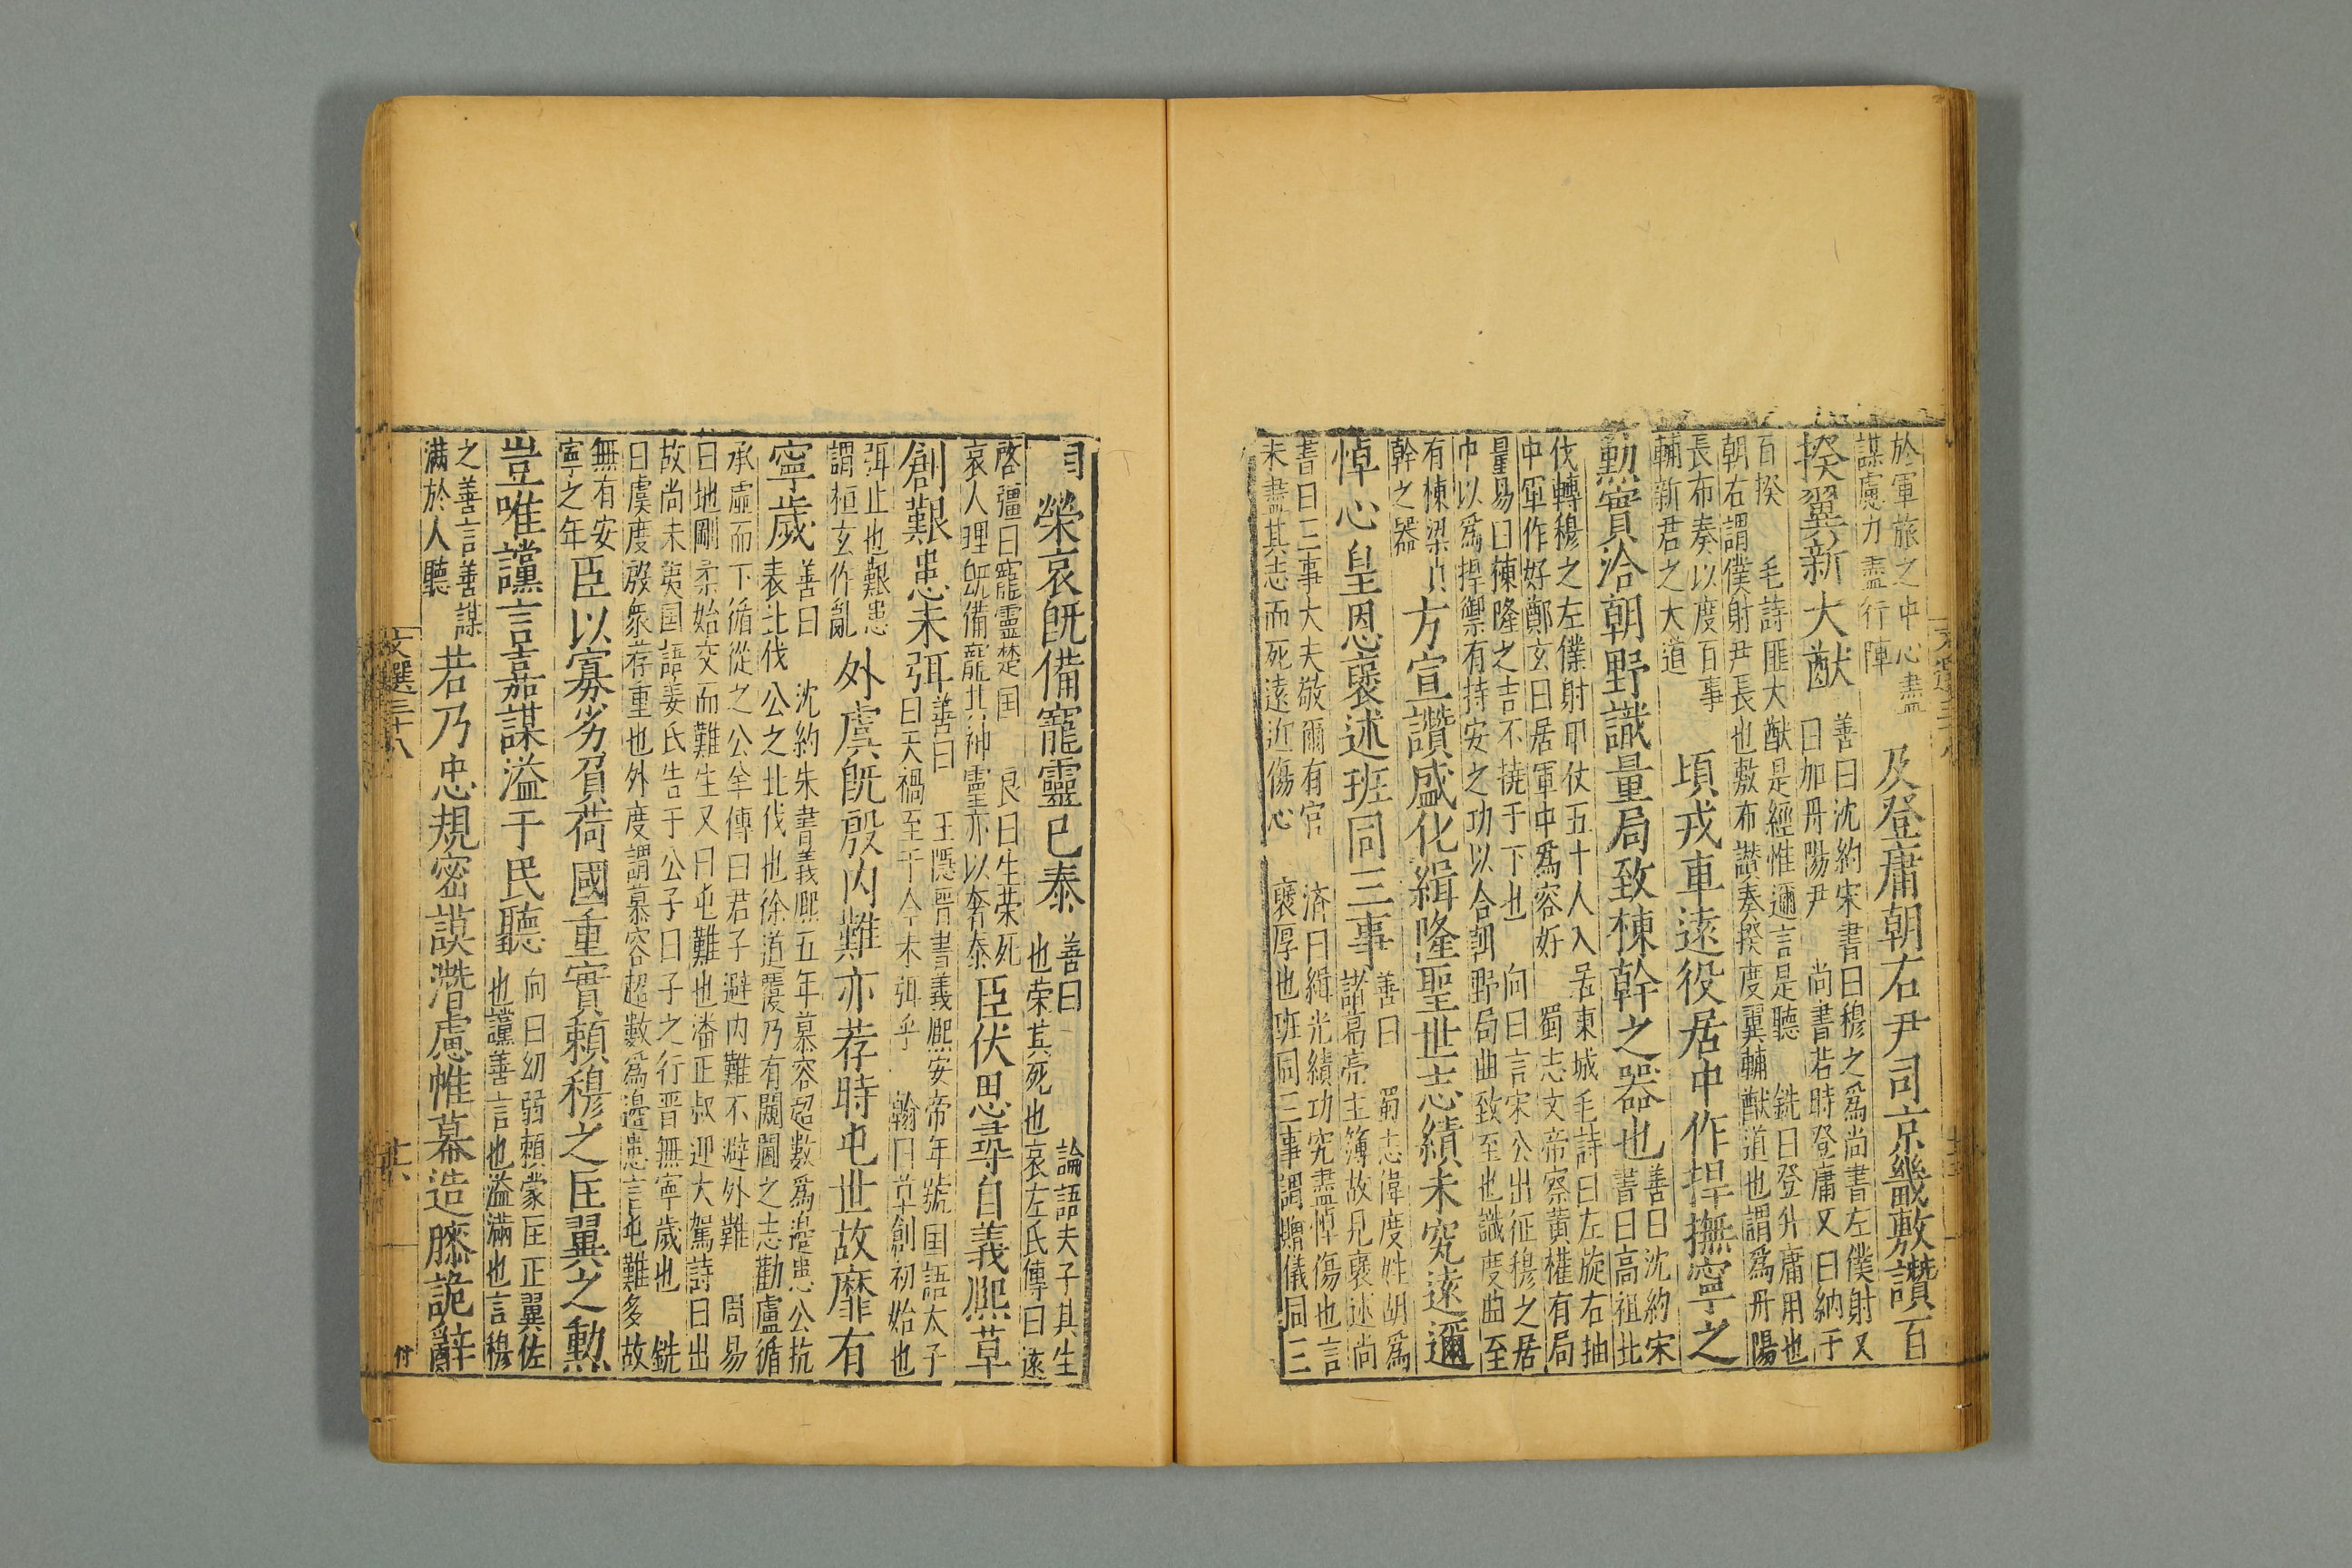 於軍旅之中心盡
謀慮力盡行陣
及登庸朝右尹司京畿敷讚百
揆翼新大猷
善曰沈約宋書曰穆之爲尚書左僕射又
曰加丹陽尹 尚書若時登庸又曰納于
百揆 毛詩匪大猷是經惟邇言是聽 銑曰登升庸用也
朝右謂僕射尹長也敷布讚奏揆度翼輔猷道也謂爲丹陽
長布奏以度百事
輔新君之大道
頃戎車遠役居中作捍撫寧之
勳實洽朝野識量局致棟幹之器也
善曰沈約宋
書曰高祖北
伐轉穆之左僕射甲仗五十人入居東城毛詩曰左旋右抽
中軍作好鄭玄曰居軍中爲容好 蜀志文帝察黃權有局
量易曰棟隆之吉不撓于下也 向曰言宋公出征穆之居
中以爲捍禦有持安之功以合朝野局曲致至也識度曲至
有棟梁貞
幹之器
方宣讚盛化緝隆聖世志績未究遠邇
悼心皇恩襃述班同三事
善曰 蜀志偉度姓胡爲
諸葛亮主簿故見襃述尚
書曰三事大夫敬爾有官 済曰緝光績功究盡悼傷也言
未盡其志而死遠近傷心 襃厚也班同三事謂贈儀同三
司
榮哀旣備寵靈已泰
善曰 論語夫子其生
也荣其死也哀左氏傳曰遠
啓彊曰寵靈楚国 良曰生荣死
哀人理旣備寵北神靈亦以奢泰
臣伏思尋自義熙草
創艱患未弭
善曰 王隱晉書義熙安帝年號国語太子
曰天禍至于今未弭乎 翰曰草創初始也
弭止也艱患
謂桓玄作亂
外虞旣殷内難亦荐時屯世故靡有
寧歲
善曰 沈約朱書義熙五年慕容超數爲邉患公抗
表北伐 公之北伐也徐道覆乃有闚䦱之志勸盧循
承虛而下循從之公羊傳曰君子避内難不避外難 周易
曰地剛柔始交而難生又曰屯難也潘正叔迎大駕詩曰出
故尚未夷国語姜氏告于公子曰子之行晉無寧歲也 銑
曰虞度殷衆荐重也外度謂慕容超數爲邉患言屯難多故
無有安
寧之年
臣以寡劣負荷國重實賴穆之匡翼之勲
豈唯讜言嘉謀溢于民聽
向曰幼弱賴蒙匡正翼佐
也讜善言也溢滿也言穆
之善言善謀
滿於人聽
若乃忠規密謨潛慮帷幕造膝詭辭
文選三十八
付